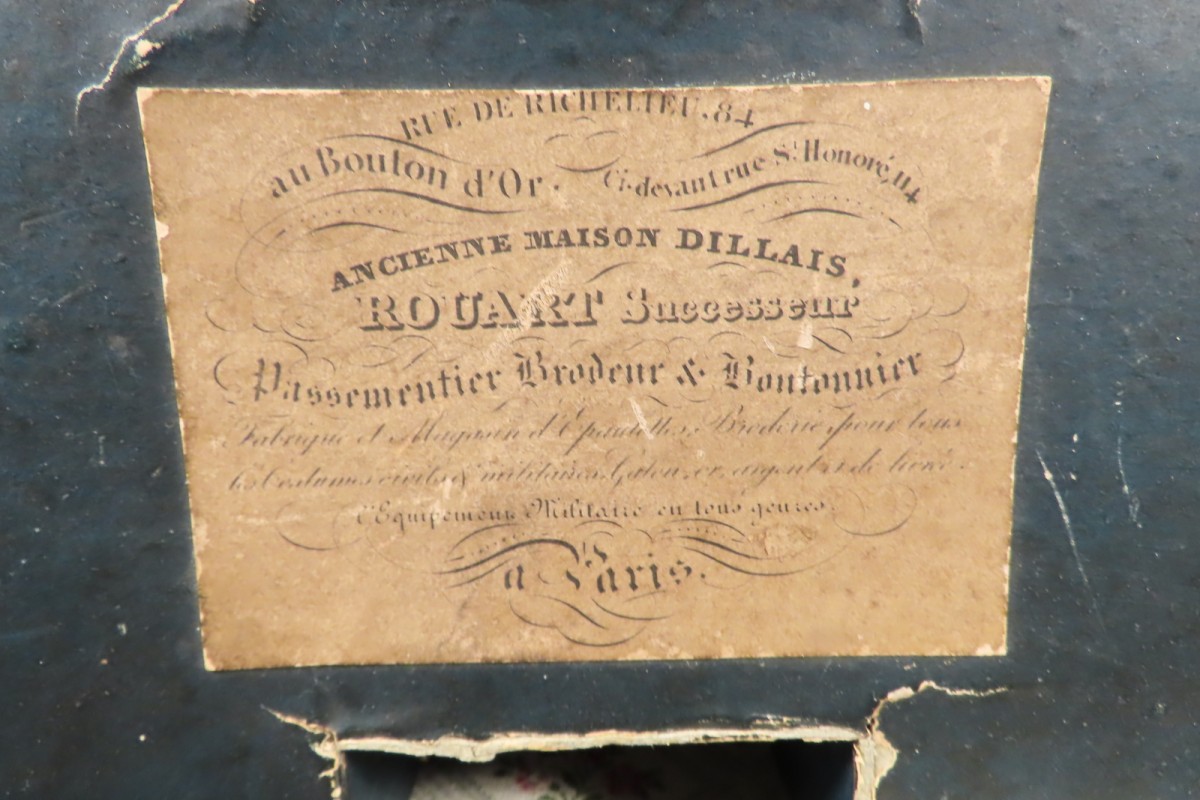 RUE DE RICHELIEU, 84
au Bouton d'Or. Ci-devant rue St. Honoré, 114
ANCIENNE MAISON DILLAIS,
ROUART Successeur
Passementier Brodeur & Boutonnier
Fabrique et Magasin d'Epaulettes, Broderie, pour tous
les Costumes civils & militaires, Galon, or, argent et de livrée.
l'Equipement Militaire en tous genres.
a Paris.